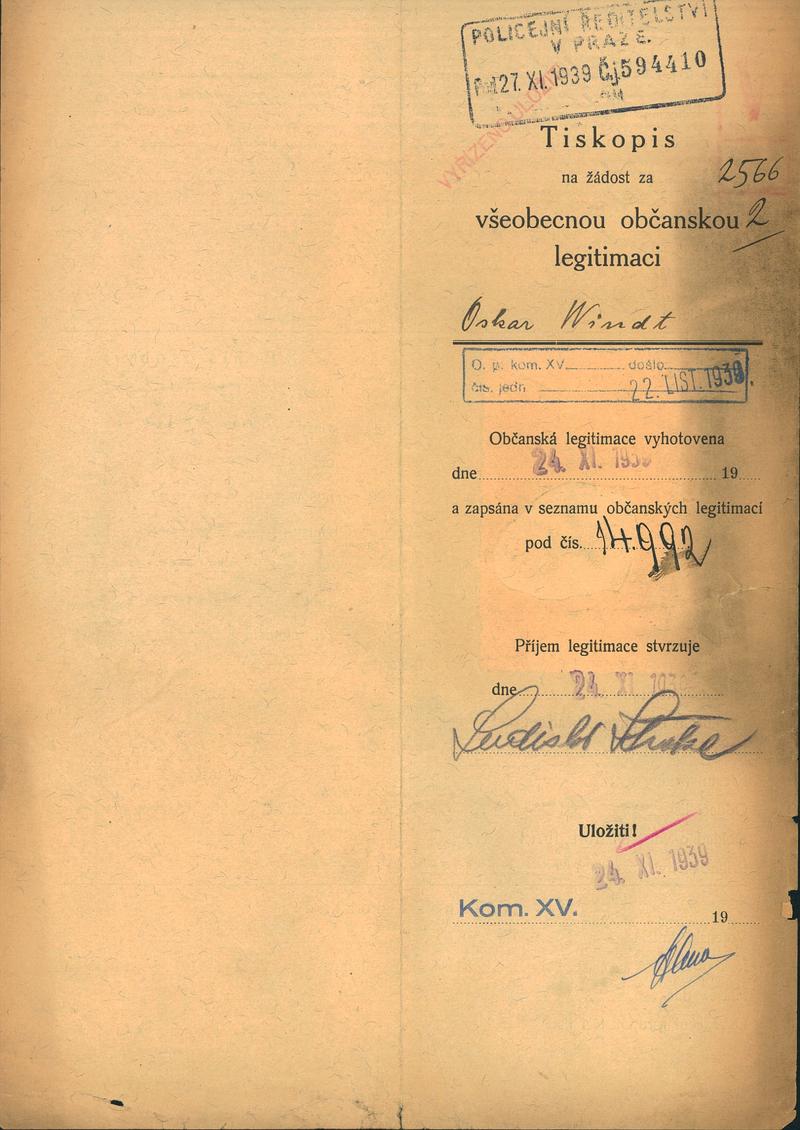 POLICEJNÍ ŘEDITELSTVÍ
V PRAZE.
27. XI. 1939 Čj. 594410
VYŘÍZENO ULOŽIT
Tiskopis
na žádost za
2566
všeobecnou občanskou 2
legitimaci
Oskar Windt
O. p. kom. XV. došlo
čís. jedn. 22. LIST. 1939
Občanská legitimace vyhotovena
dne 24. XI. 1939 19
a zapsána v seznamu občanských legitimací
pod čís. 14.992
Příjem legitimace stvrzuje
dne 24. XI. 1939
Uložiti!
24. XI. 1939
Kom. XV. 19